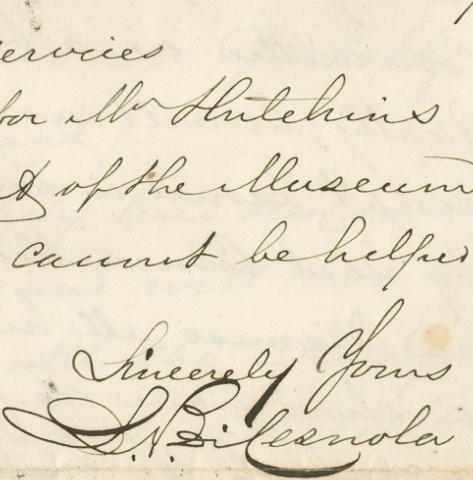 ervices
for Mr Hutchins
of the Museum
cannot be helped
Sincerely Yours
L. P. di Cesnola